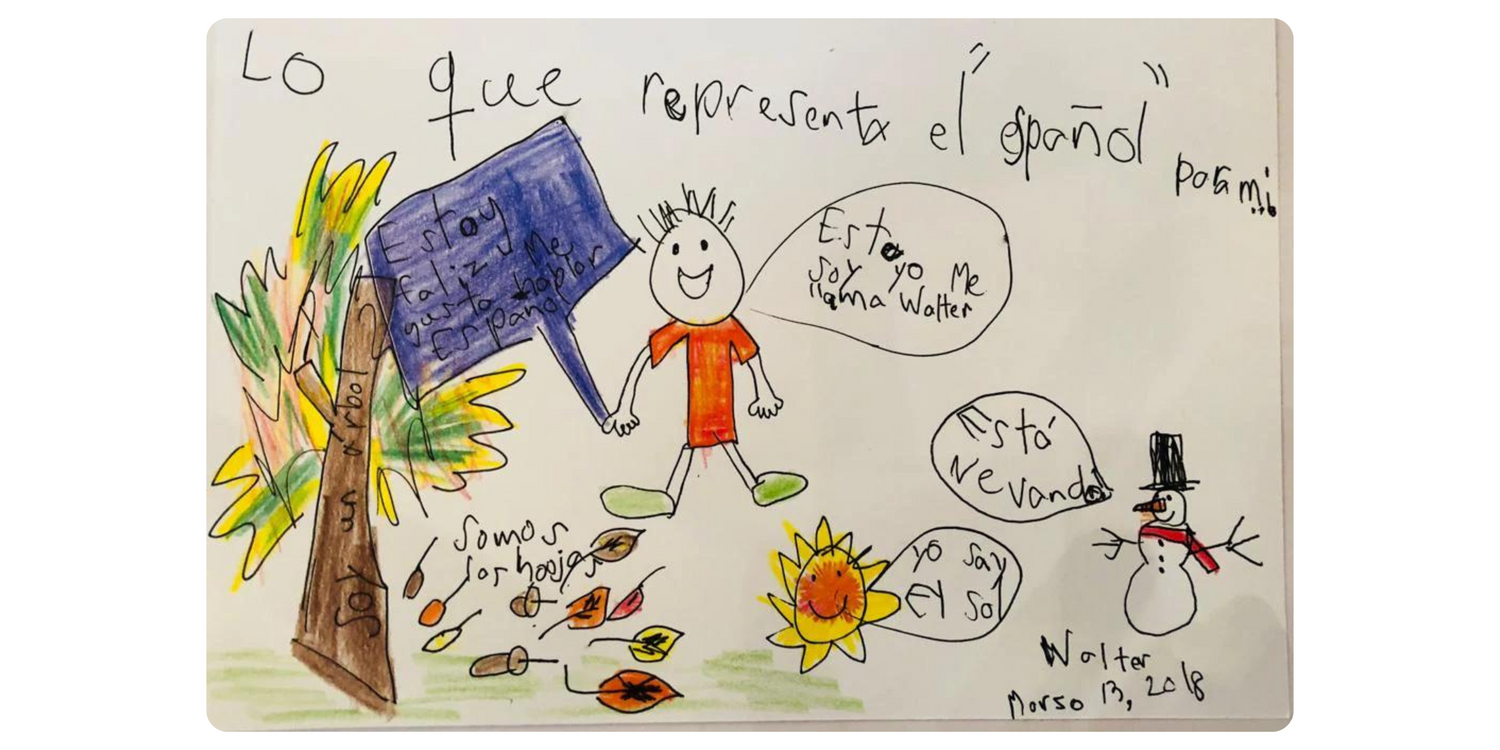 Lo que representa el "español" para mi
Estoy
faliz Me
gusta hablar
Español
Esto
soy yo Me
llama Walter
soy un árbol
Somos
las hoojas
Está
Nevando
yo say
El sol
Walter
Marso 13, 2018